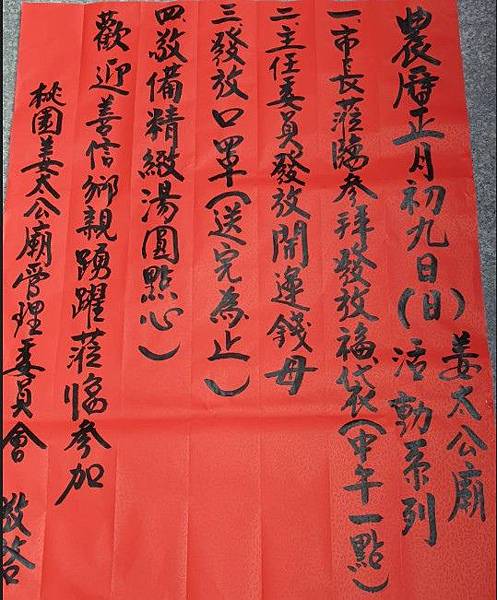 姜太公廟
農曆正月初九日(日)活動系列
一、市長蒞臨參拜發放福袋(中午一點)
二、主任委員發放開運錢母
三、發放口罩(送完為止)
四、敬備精緻湯圓點心)
歡迎善信鄉親踴躍蒞臨參加
桃園姜太公廟管理委員會 敬啟